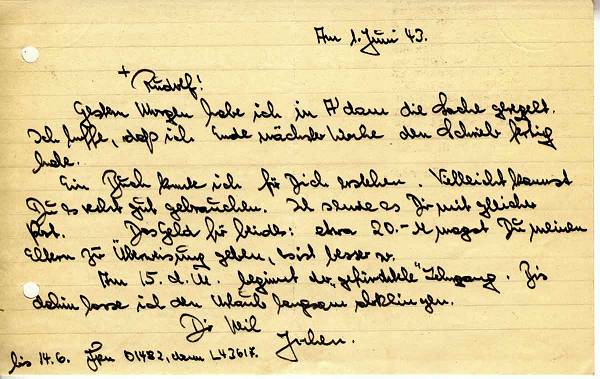 Am 1. Juni 43.
+ Rudolf!
Gestern Morgen habe ich in A'dam die Sache geregelt.
Ich hoffe, daß ich Ende nächster Woche den Schrieb fertig
habe.
Ein Buch konnte ich für Dich erstehen. Vielleicht kannst
Du es recht gut gebrauchen. Ich sende es Dir mit gleicher
Post. Das Geld für beides: etwa 20.-M magst Du meinen
Eltern zur Überweisung geben, so ist besser so.
Am 15. d. M. beginnt der "gefürchtete" Lehrgang. Bis
dahin lasse ich den Urlaub langsam abklingen.
Dir Heil
Jochen.
bis 14.6. 01482, dann L43617.